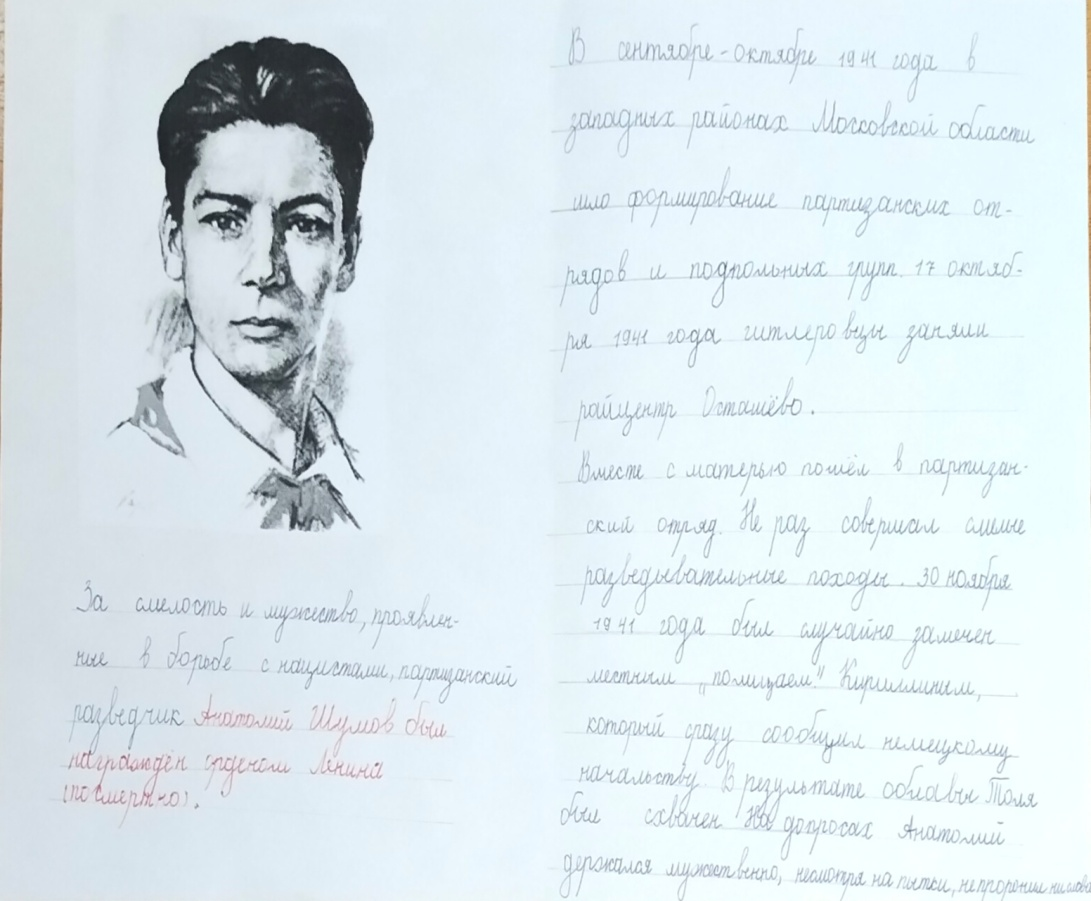 За смелость и мужество, проявлен-
ные в борьбе с нацистами, партизанский
разведчик Анатолий Шумов был
награждён орденом Ленина
(посмертно).
В сентябре-октябре 1941 года в
западных районах Московской области
шло формирование партизанских от-
рядов и подпольных групп. 17 октяб-
ря 1941 года гитлеровцы заняли
райцентр Осташёво.
Вместе с матерью пошёл в партизан-
ский отряд. Не раз совершал смелые
разведывательные походы. 30 ноября
1941 года был случайно замечен
местным „полицаем" Кириллиным,
который сразу сообщил немецкому
начальству. В результате облавы Толя
был схвачен. На допросах Анатолий
держался мужественно, несмотря на пытки, не проронил ни слова